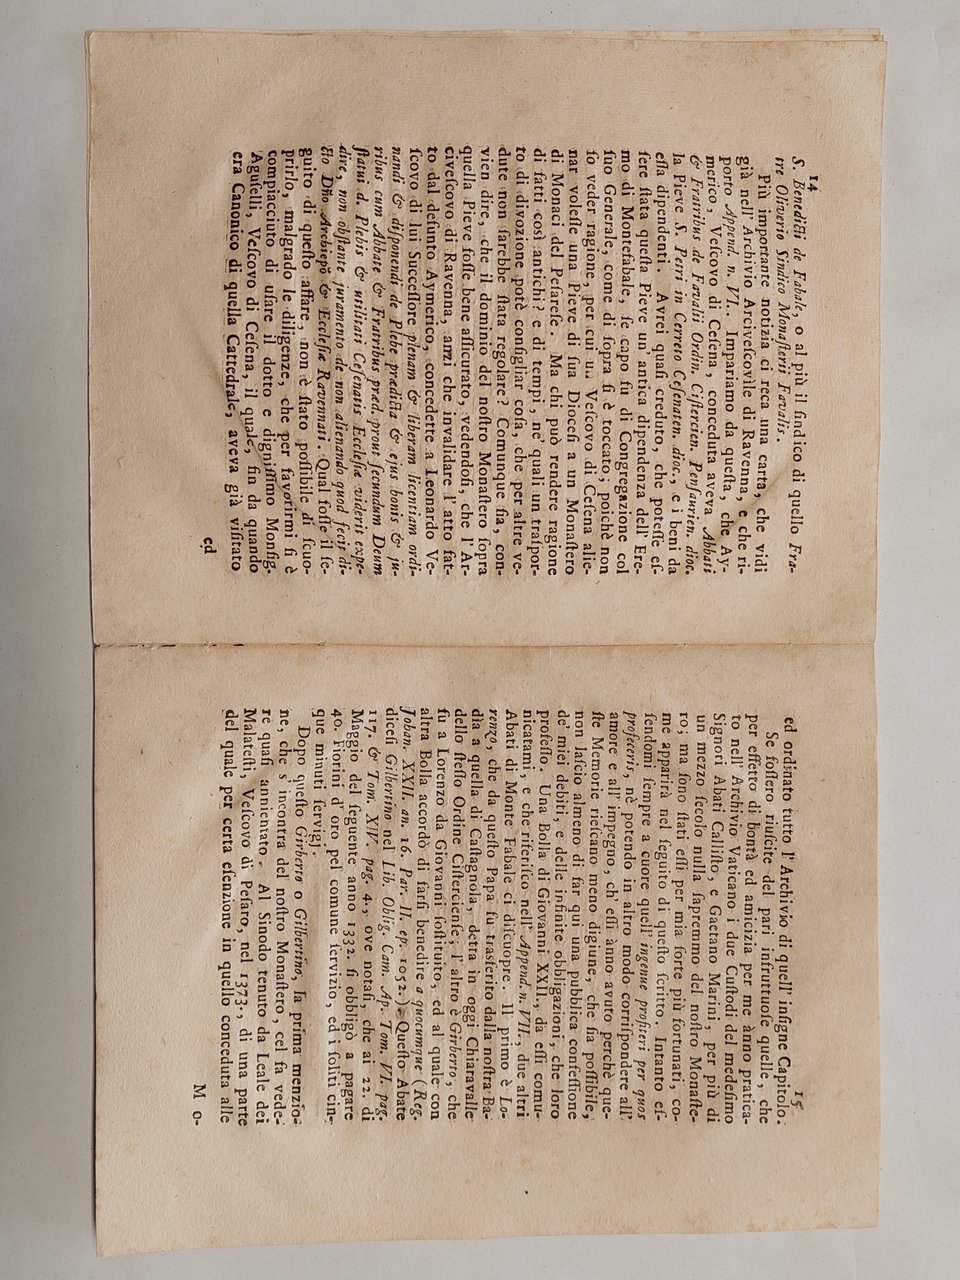 14
S. Benedicti de Fabale, o al più il sindico di quello Fra-
tre Oliverio Sindico Monasterii Favalis.
Più importante notizia ci reca una carta, che vidi
già nell' Archivio Arcivescovìle di Ravenna, e che ri-
porto Append. n. VI. Impariamo da questa, che Ay-
merico, Vescovo di Cesena, conceduta aveva Abbati
& Fratribus de Favali Ordin. Cistercien. Pensaurien. dioc.
la Pieve S. Petri in Cerreto Cesenaten. dioc., e i beni da
essa dipendenti. Avrei quasi creduto, che potesse es-
sere stata questa Pieve un' antica dipendenza dell' Ere-
mo di Montefabale, se capo fu di Congregazione col
suo Generale, come di sopra si è toccato; poichè non
so veder ragione, per cui un Vescovo di Cesena alie-
nar volesse una Pieve di sua Diocesi a un Monastero
di Monaci del Pesarese. Ma chi può rendere ragione
di fatti così antichi? e di tempi, ne' quali un traspor-
to di divozione potè consigliar cosa, che per altre ve-
dute non sarebbe stata regolare? Comunque sia, con-
vien dire, che il dominio del nostro Monastero sopra
quella Pieve fosse bene assicurato, vedendosi, che l' Ar-
civescovo di Ravenna, anzi che invalidare l' atto fat-
to dal defunto Aymerico, concedette a Leonardo Ve-
scovo di lui Successore plenam & liberam licentiam ordi-
nandi & disponendi de Plebe prædicta & ejus bonis & ju-
ribus cum Abbate & Fratribus præd. prout secundum Deum
statui d. Plebis & utilitati Cesenatis Ecclesiæ viderit expe-
dire, non obstante juramento de non alienando quod fecit di-
cto Dño Archiepõ & Ecclesiæ Ravennati. Qual fosse il se-
guito di questo affare, non è stato possibile di scuo-
prirlo, malgrado le diligenze, che per favorirmi si è
compiacciuto di usare il dotto e dignissimo Monsig.
Aguselli, Vescovo di Cesena, il quale, fin da quando
era Canonico di quella Cattedrale, aveva già visitato
ed
15
ed ordinato tutto l' Archivio di quell' insigne Capitolo.
Se fossero riuscite del pari infruttuose quelle, che
per effetto di bontà ed amicizia per me ànno pratica-
to nell' Archivio Vaticano i due Custodi del medesimo
Signori Abati Callisto, e Gaetano Marini, per più di
un mezzo secolo nulla sapremmo del nostro Monaste-
ro; ma sono stati essi per mia sorte più fortunati, co-
me apparirà nel seguito di questo scritto. Intanto es-
sendomi sempre a cuore quell' ingenue profiteri per quos
profeceris, nè potendo in altro modo corrispondere all'
amore e all' impegno, ch' essi ànno avuto perchè que-
ste Memorie riescano meno digiune, che sia possibile,
non lascio almeno di far qui una pubblica confessione
de' miei debiti, e delle infinite obbligazioni, che loro
professo. Una Bolla di Giovanni XXII., da essi comu-
nicatami, e che riferisco nell' Append. n. VII., due altri
Abati di Monte Fabale ci discuopre. Il primo è Lo-
renzo, che da questo Papa fu trasferito dalla nostra Ba-
dìa a quella di Castagnola, detta in oggi Chiaravalle
dello stesso Ordine Cisterciense; l' altro è Girberto, che
fu a Lorenzo da Giovanni sostituito, ed al quale con
altra Bolla accordò di farsi benedire a quocumque (Reg.
Johan. XXII. an. 16. Par. II. ep. 1052.). Questo Abate
dicesi Gilbertino nel Lib. Oblig. Cam. Ap. Tom. VI. pag.
117. & Tom. XIV. pag. 4., ove notasi, che ai 22. di
Maggio del seguente anno 1332. si obbligò a pagare
40. Fiorini d' oro pel comune servizio, ed i soliti cin-
que minuti servigj.
Dopo questo Girberto o Gilbertino, la prima menzio-
ne, che s' incontra del nostro Monastero, cel fa vede-
re quasi annientato. Al Sinodo tenuto da Leale dei
Malatesti, Vescovo di Pesaro, nel 1373., di una parte
del quale per certa esenzione in quello conceduta alle
M o-